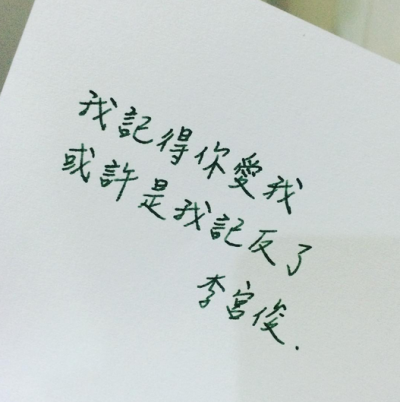 我記得你愛我
或許是我記反了
李宮俊.